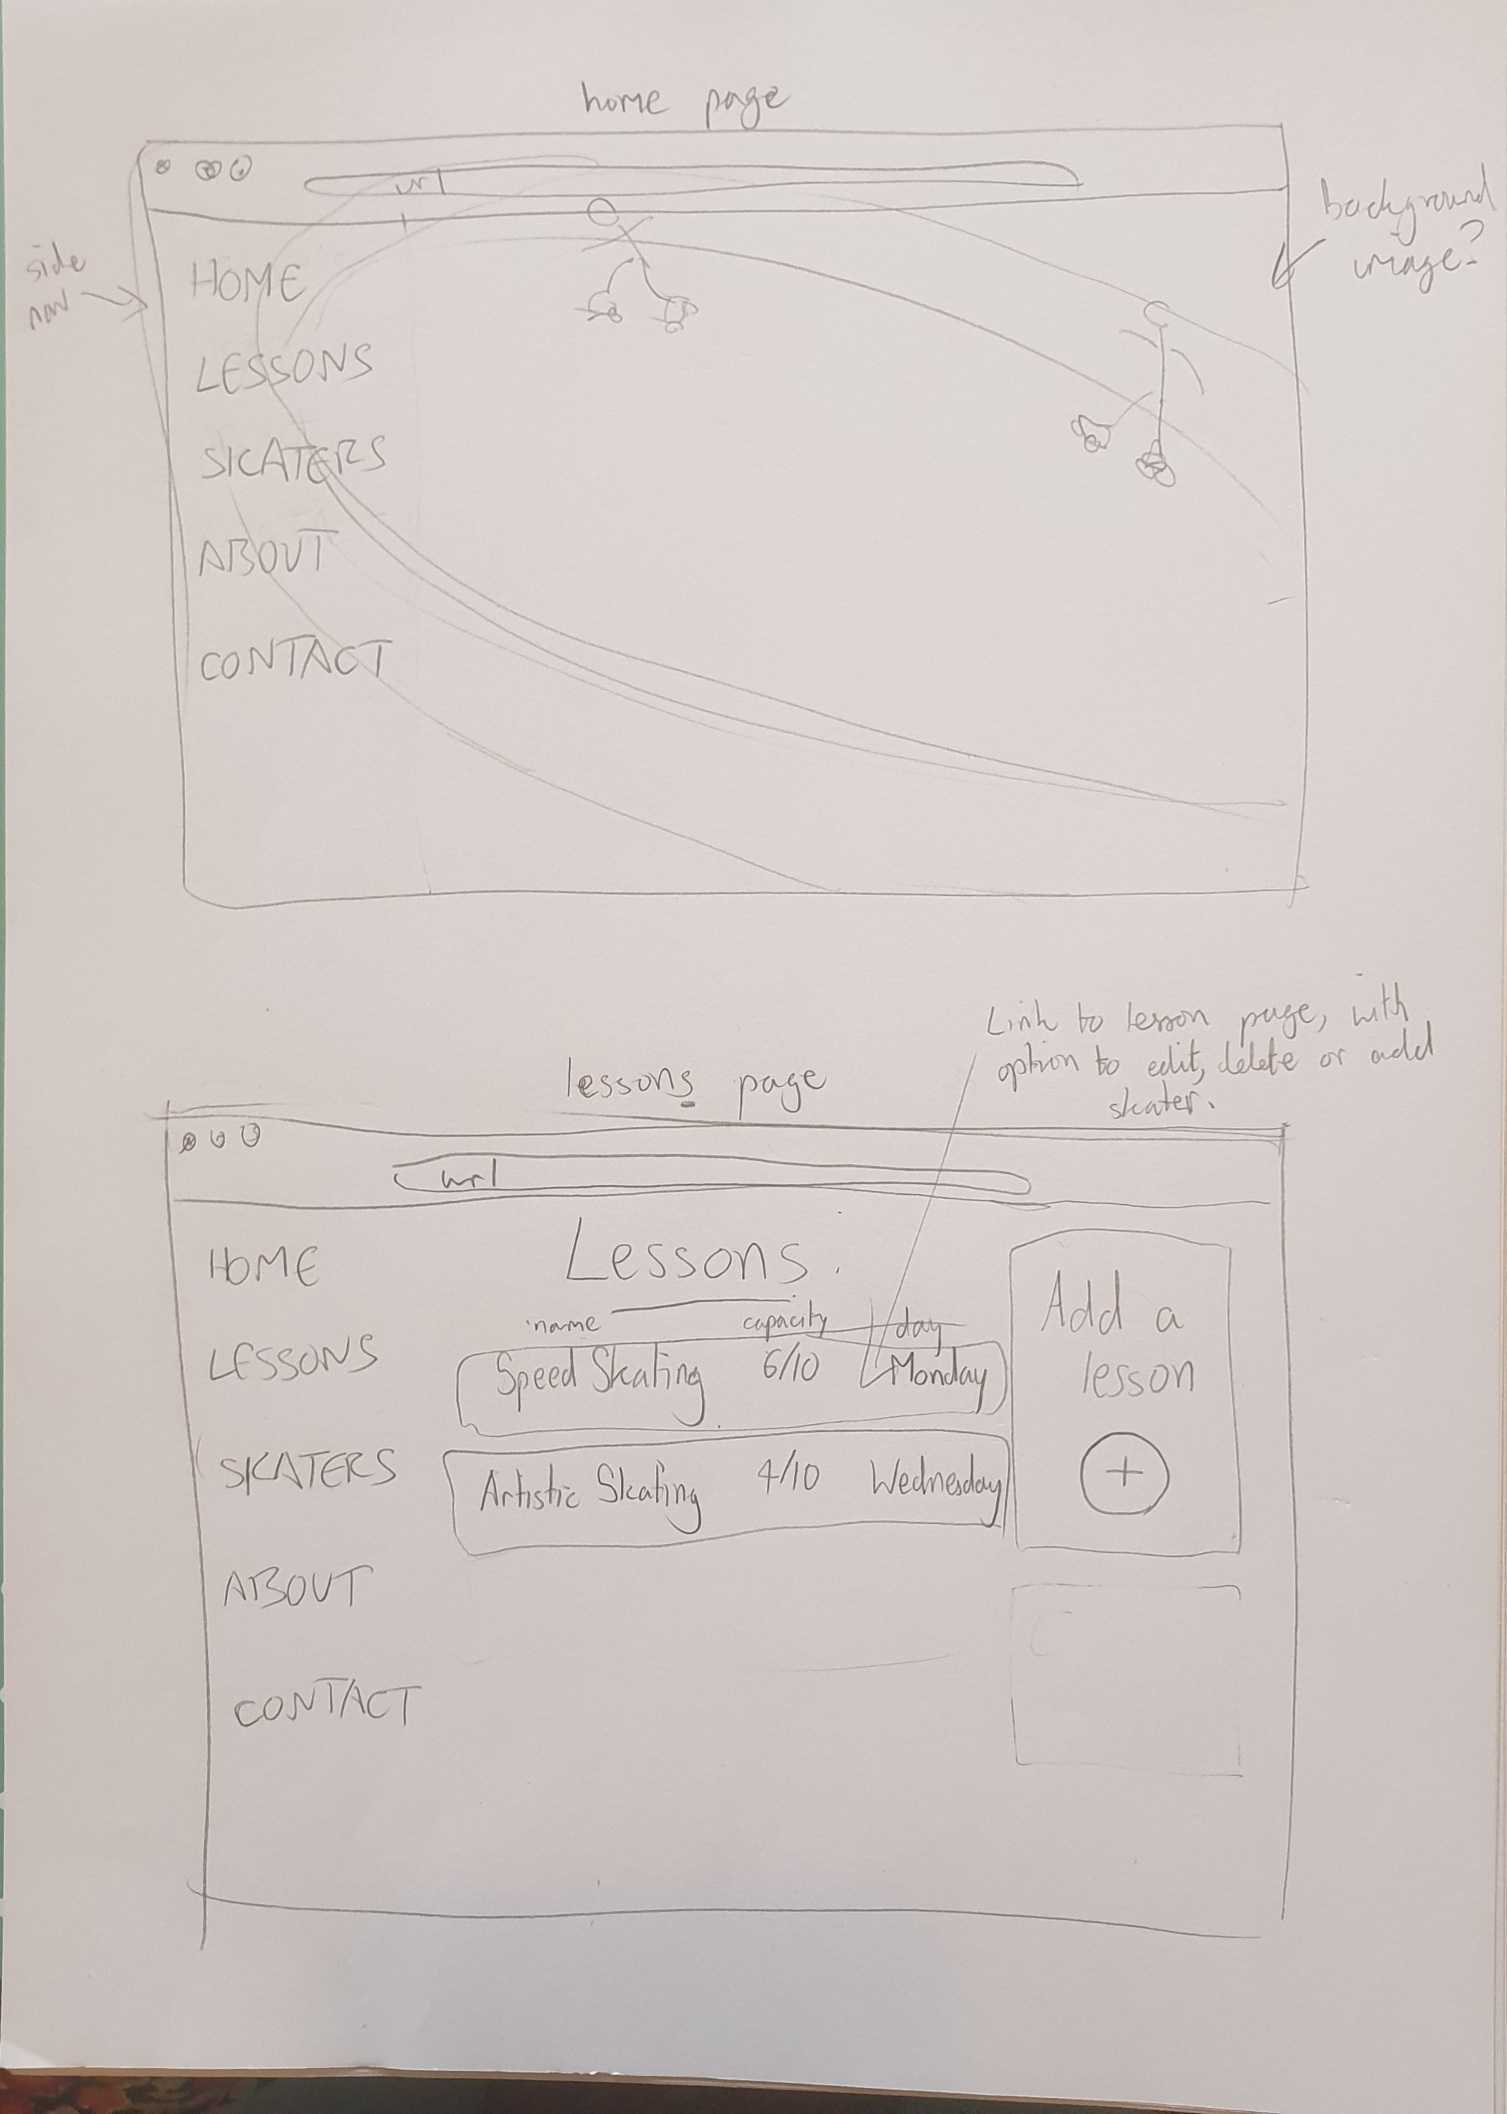 home page
url
side
nav
background
image?
HOME
LESSONS
SKATERS
ABOUT
CONTACT
Link to lesson page, with
option to edit, delete or add
skater.
lessons page
url
HOME
LESSONS
SKATERS
ABOUT
CONTACT
Lessons.
name capacity day
Speed Skating 6/10 Monday
Artistic Skating 4/10 Wednesday
Add a
lesson
+